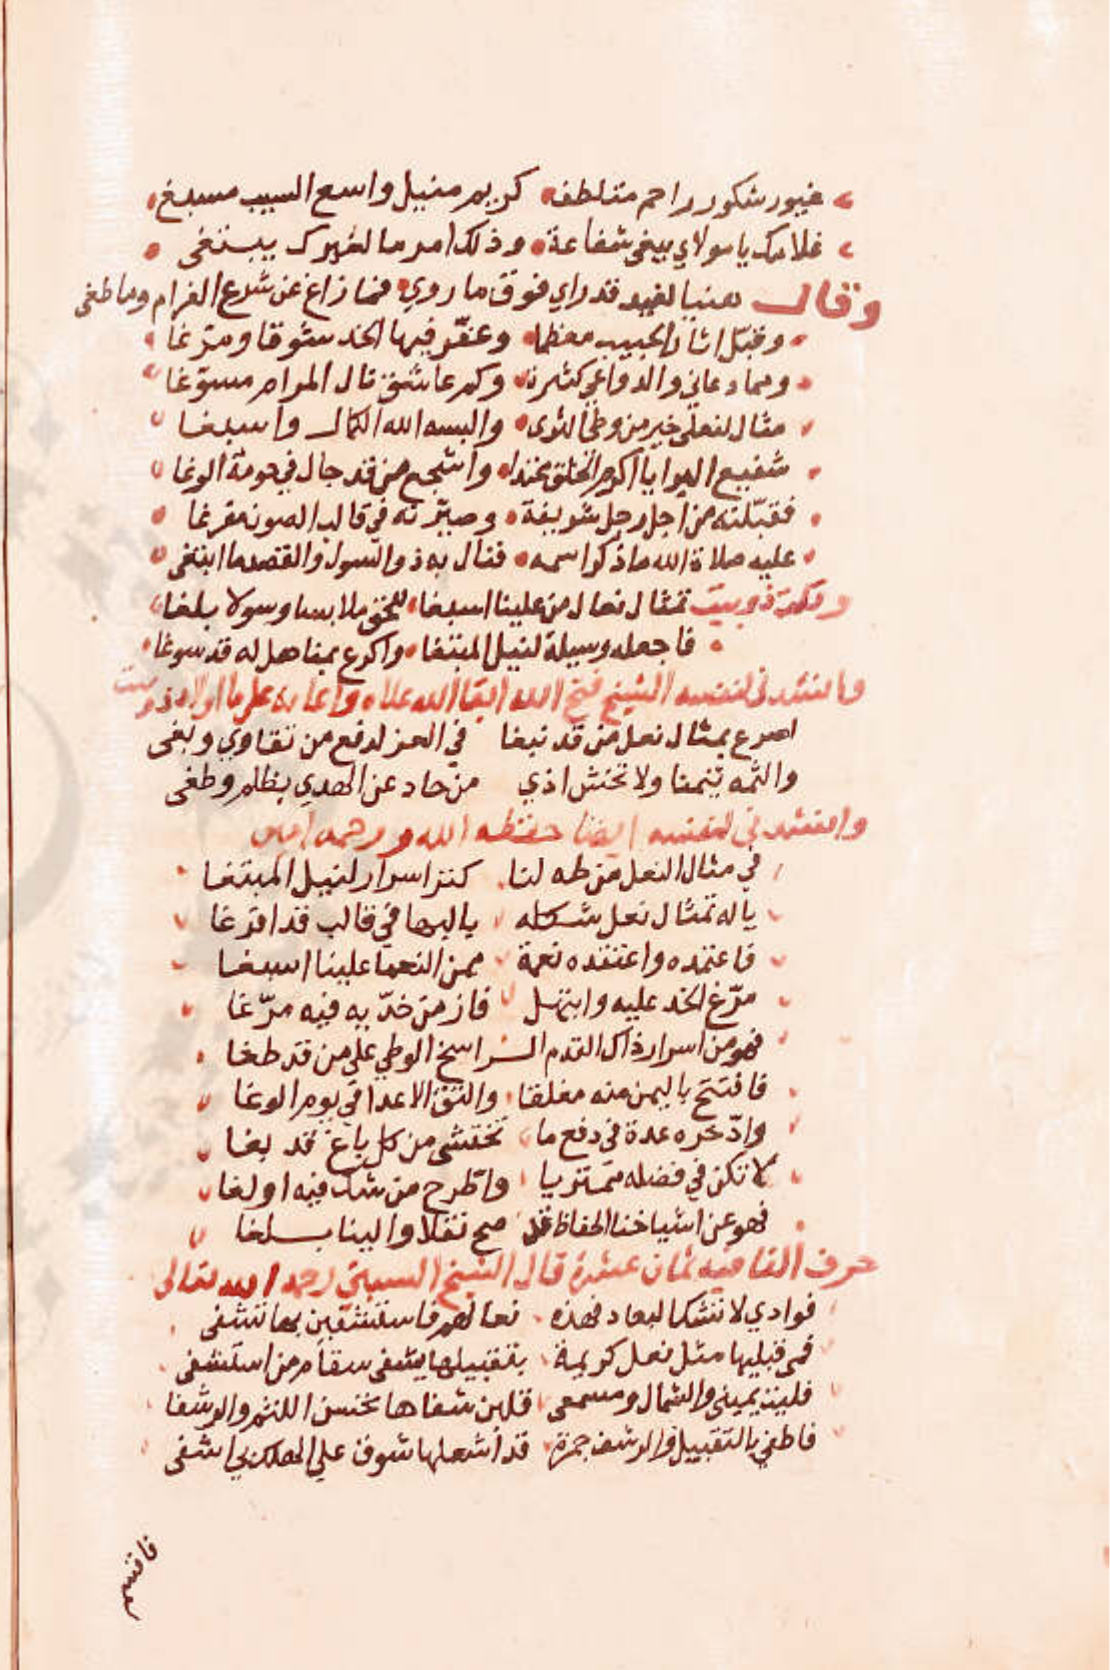 غيور شكور راحم متلطف كريم منيل واسع السيب مسبغ
غلامك يا مولاي يبغي شفاعة وذلك امر ما لغيرك يبتغى
وقال قد راي فوق ما روي فما زاغ عن شرع الغرام وما طغى
وقبل اثار الحبيب معظما وعفر فيها الخد شوقا ومرغا
ومما دعاني والدواعي كثيرة وكم عاشق نال المرام مسوغا
مثال لنعلي خير من وطئ الثرى والبسه الله الكمال واسبغا
شفيع البرايا اكرم الخلق محتدا واشجع من قد جال في حومة الوغا
فقبلته من اجل رجل شريفة وصيرته في قالب الصون مفرغا
عليه صلاة الله ما ذكر اسمه فنال به ذو السول والقصد ما ابتغى
تمثال نعال من علينا اسبغا ملابسا وسولا بلغا
فاجعله وسيلة لنيل المبتغا واكرع بمناهل له قد سوغا
وانشدني لنفسه الشيخ فتح الله ابقا الله علاه
امرع بمثال نعل من قد نبغا في العز لدفع من تقاوي وبغى
والثمه تيمنا ولا تخش اذي من حاد عن الهدي بظلم وطغى
وانشدني لنفسه ايضا حفظه الله ورحمه امين
في مثال النعل من طه لنا كنز اسرار لنيل المبتغا
ياله تمثال نعل شكله بالبها في قالب قد افرغا
فاعتمده واعتقده نعمة ممن النعما علينا اسبغا
مرغ الخد عليه وابتهل فاز من خديه فيه مرغا
فهو من اسرار ذاك القدم الراسخ الوطي على من قد طغا
فافتتح باليمن منه مغلقا والتق الاعدا في يوم الوغا
وادخره عدة في دفع ما تختشى من كل باغ قد بغا
لا تكن في فضله ممتريا واطرح من شك فيه او لغا
فهو عن اشياخنا الحفاظ قد صح نقلا والينا بلغا
حرف الفا فيه ثمان عشرة قال الشيخ السبتي رحمه الله تعالى
فوادي لا تشكا البعاد فهذه نعالهم فاستنشقين بها تشفى
فمي قبليها مثل نعل كريمة بتقبيلها يشفى سقام من استشفى
فليت يميني والشمال ومسمعي قلبن شفاها تحسن اللثم والرشفا
فاطفي بالتقبيل والرشف جمرة قد اشعلها شوق علي الهلك بي اشفى